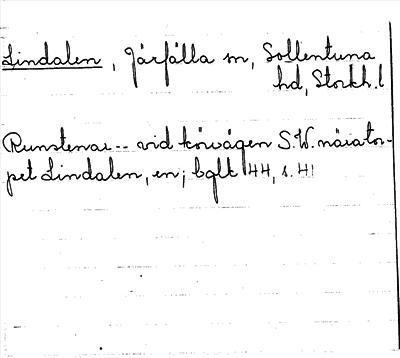 Lindalen, Järfälla sn, Sollentuna
hd, Stockh. l
Runstenar -- vid körvägen S.W. nära tor-
pet Lindalen, en; bglk 144, s. 41